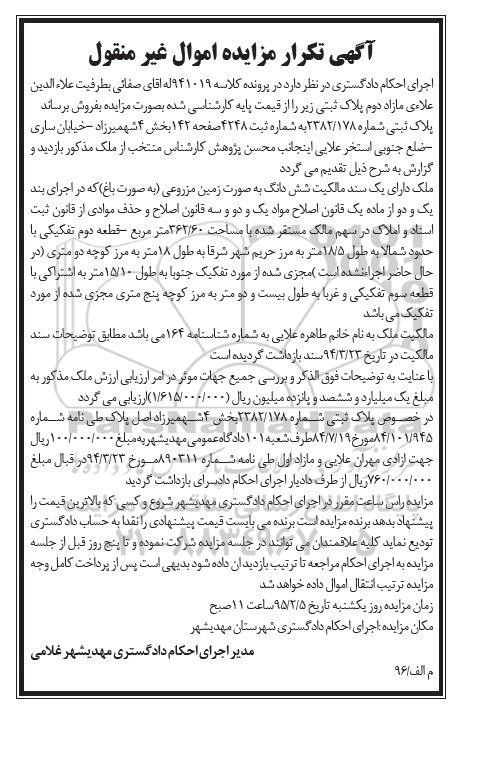 آگهی تکرار مزایده اموال غیر منقول
اجرای احکام دادگستری در نظر دارد در پرونده کلاسه ۹۴۱۰۱۹له اقای صفائی بطرفیت علاء الدین
علاءی مازاد دوم پلاک ثبتی زیر را از قیمت پایه کارشناسی شده بصورت مزایده بفروش برساند
پلاک ثبتی شماره ۲۳۸۲/۱۷۸به شماره ثبت ۴۲۴۸صفحه ۱۴۲بخش ۴شهمیرزاد –خیابان ساری
–ضلع جنوبی استخر علایی اینجانب محسن پژوهش کارشناس منتخب از ملک مذکور بازدید و
گزارش به شرح ذیل تقدیم می گردد
ملک دارای یک سند مالکیت شش دانگ به صورت زمین مزروعی (به صورت باغ)که در اجرای بند
یک و دو از ماده یک قانون اصلاح مواد یک و دو و سه قانون اصلاح و حذف موادی از قانون ثبت
اسناد و املاک در سهم مالک مستقر شده با مساحت ۳۶۲/۶۰متر مربع –قطعه دوم تفکیکی با
حدود شمالا به طول ۱۸/۵متر به مرز حریم شهر شرقا به طول ۱۸متر به مرز کوچه دو متری (در
حال حاضر اجراءنشده است )مجزی شده از مورد تفکیک جنوبا به طول ۱۵/۱۰متر به اشتراکی با
قطعه سوم تفکیکی و غربا به طول بیست و دو متر به مرز کوچه پنج متری مجزی شده از مورد
تفکیک می باشد
مالکیت ملک به نام خانم طاهره علایی به شماره شناسنامه ۱۶۴می باشد مطابق توضیحات سند
مالکیت در تاریخ ۹۴/۳/۲۳سند بازداشت گردیده است
با عنایت به توضیحات فوق الذکر و بررسی جمیع جهات موثر در امر ارزیابی ارزش ملک مذکور به
مبلغ یک میلیارد و ششصد و پانزده میلیون ریال (۱/۶۱۵/۰۰۰/۰۰۰)ارزیابی می گردد
در خصوص پلاک ثبتی شماره ۲۳۸۲/۱۷۸بخش ۴شهمیرزاد اصل پلاک طی نامه شماره
۸۴/۱۰۱/۹۴۵مورخ۸۴/۷/۱۹طرف شعبه۱۰۱دادگاه عمومی مهدیشهر به مبلغ ۱۰۰/۰۰۰/۰۰۰ریال
جهت ازادی مهران علایی و مازاد اول طی نامه شماره ۸۹۰۳۱۱مورخ ۹۴/۳/۲۳در قبال مبلغ
۷۶۰/۰۰۰/۰۰۰ریال از طرف دادیار اجرای احکام دادسرای بازداشت گردید
مزایده راس ساعت مقرر در اجرای احکام دادگستری مهدیشهر شروع و کسی که بالاترین قیمت را
پیشنهاد بدهد برنده مزایده است برنده می بایست قیمت پیشنهادی را نقدا به حساب دادگستری
تودیع نماید کلیه علاقمندان می توانند در جلسه مزایده شرکت نموده و تا پنج روز قبل از جلسه
مزایده به اجرای احکام مراجعه تا ترتیب بازدیدان داده شود بدیهی است پس از پرداخت کامل وجه
مزایده ترتیب انتقال اموال داده خواهد شد
زمان مزایده روز یکشنبه تاریخ ۹۵/۲/۵ساعت ۱۱صبح
مکان مزایده :اجرای احکام دادگستری شهرستان مهدیشهر
مدیر اجرای احکام دادگستری مهدیشهر غلامی
م الف/۹۶